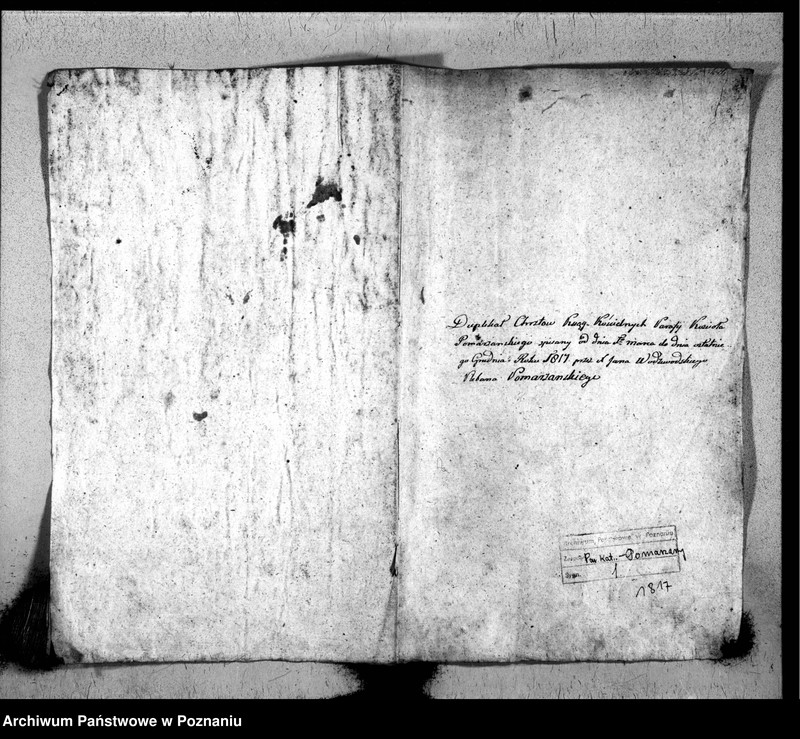 Duplikat Chrztów Xsiąg Kościelnych Parafij Kościoła
Pomarzanskiego spisany od dnia 1. marca do dnia ostatnie
go Grudnia Roku 1817 przez X Jana
Plebana Pomarzanskiego
Archiwum Państwowe w Poznaniu
Zespół: Par. Kat. - Pomarzany
Sygn. 1
1817
Archiwum Państwowe w Poznaniu